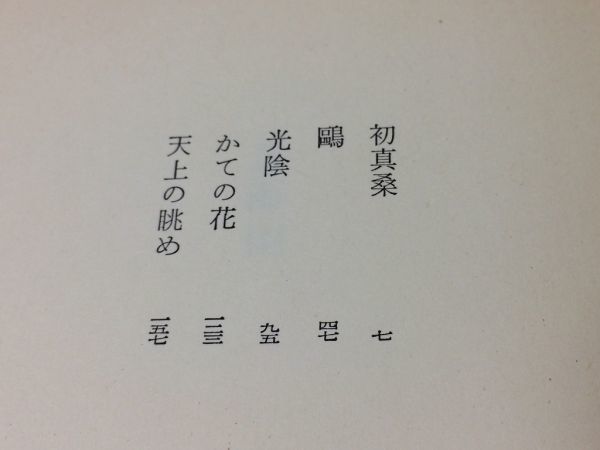 初真桑 七
鷗 四七
光陰 九五
かての花 一二三
天上の眺め 一五七